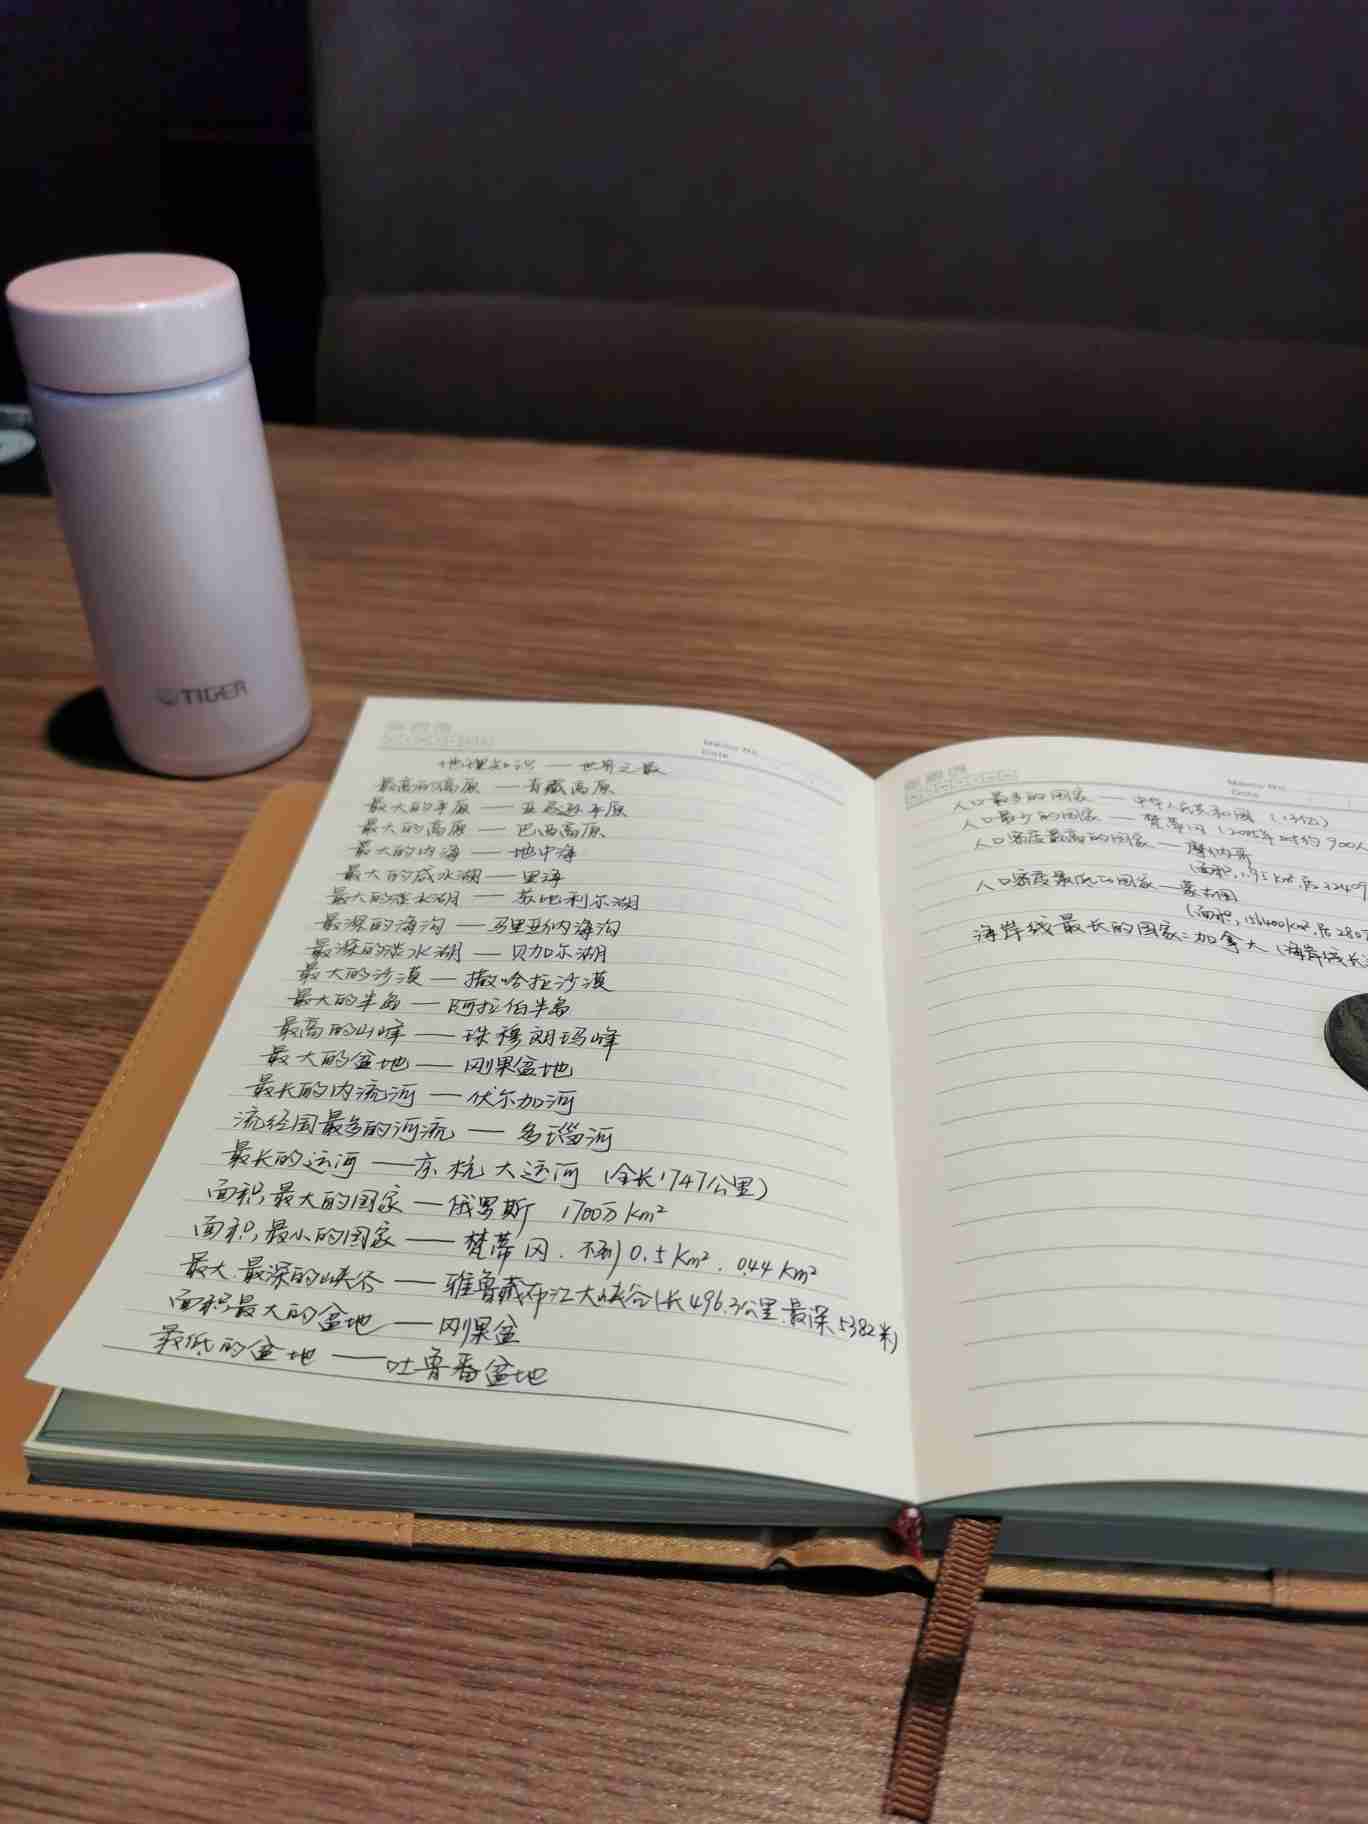 TIGER
Memo No.
Date
地理知识——世界之最
最高的高原——青藏高原
最大的平原——亚马逊平原
最大的高原——巴西高原
最大的内海——地中海
最大的咸水湖——里海
最大的淡水湖——苏比利尔湖
最深的海沟——马里亚纳海沟
最深的淡水湖——贝加尔湖
最大的沙漠——撒哈拉沙漠
最大的半岛——阿拉伯半岛
最高的山峰——珠穆朗玛峰
最大的盆地——刚果盆地
最长的内流河——伏尔加河
流经国最多的河流——多瑙河
最长的运河——京杭大运河(全长1747公里)
面积最大的国家——俄罗斯 1700万km²
面积最小的国家——梵蒂冈.不到0.5km².0.44km²
最大.最深的峡谷——雅鲁藏布江大峡谷(长496.3公里.最深5382米)
面积最大的盆地——刚果盆
最低的盆地——吐鲁番盆地
Memo No.
Date
人口最多的国家——中华人民共和国(13亿)
人口最少的国家——梵蒂冈
人口密度最高的国家——摩纳哥
(面积,1.95km²,
人口密度最低的国家——蒙古国
(面积,
海岸线最长的国家:加拿大(海岸线长